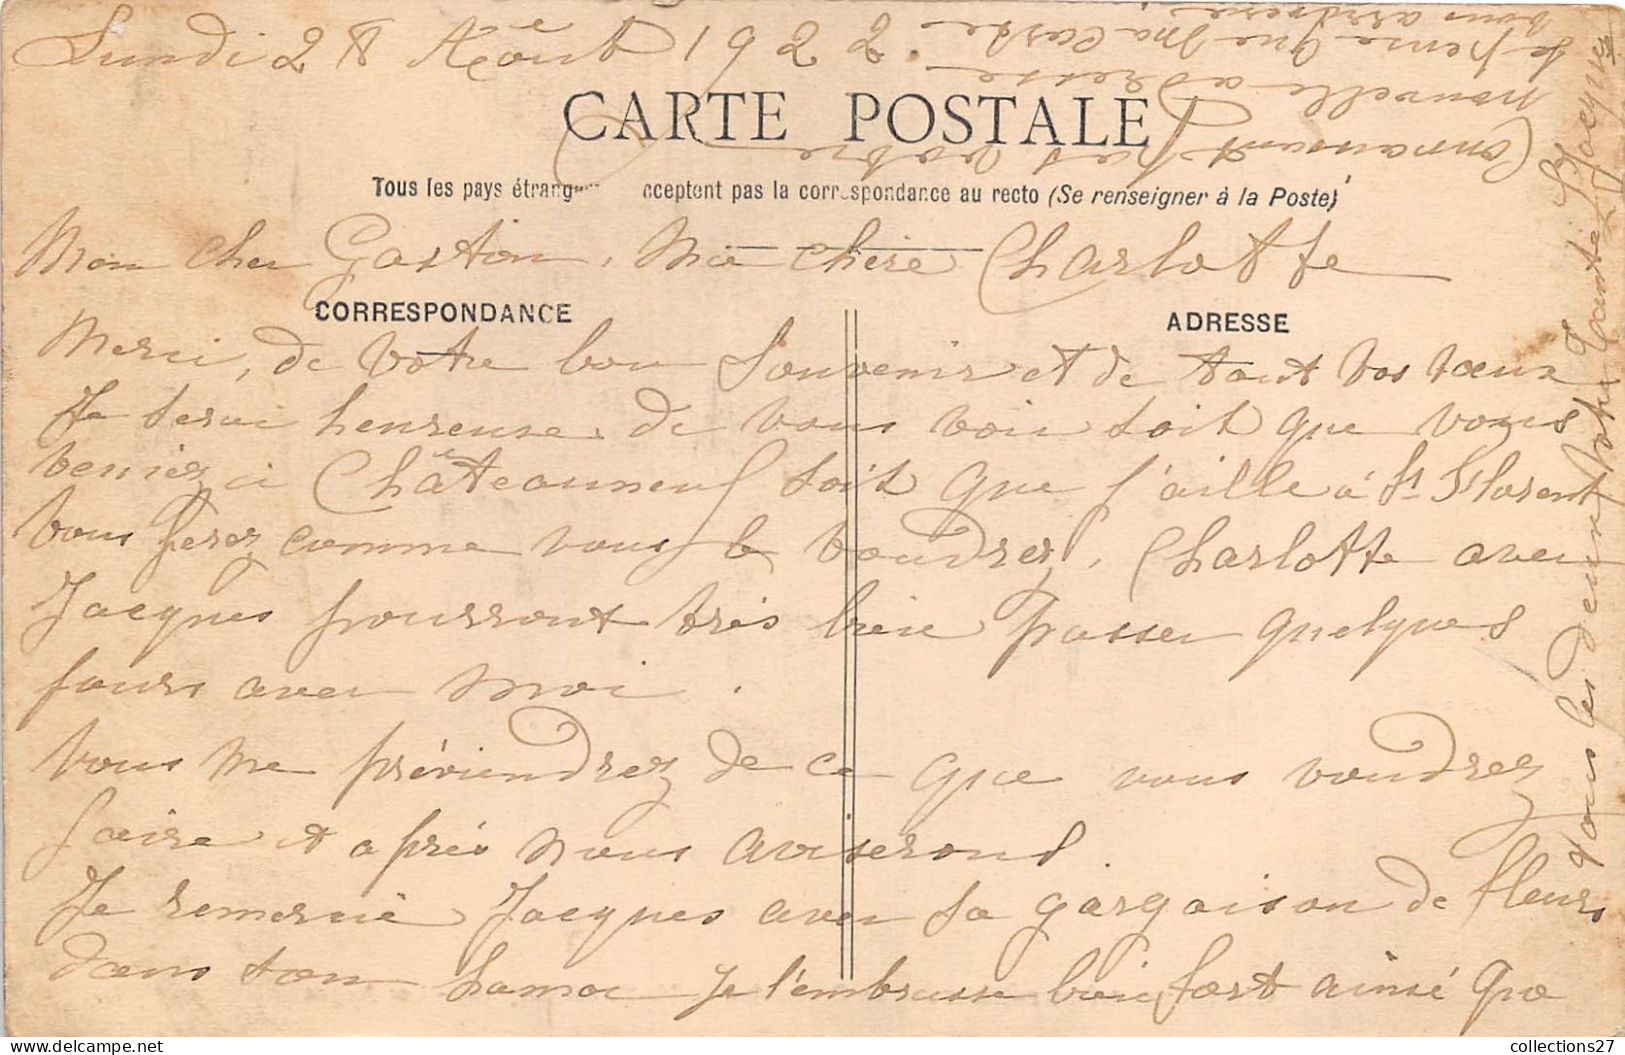 Lundi 28 Août 1922.
CARTE POSTALE
Tous les pays étrang cceptent pas la correspondance au recto (Se renseigner à la Poste)
Mon cher Gaston, Ma chère Charlotte
CORRESPONDANCE
ADRESSE
Merci, de Votre bon Souvenir et de tout Vos vœux
Je serai heureuse de vous voir soit que vous
veniez à Châteauneuf soit que j'aille à St Florent
Vous ferez comme vous le voudrez, Charlotte avec
Jacques pourront très bien passer quelques
jours avec moi.
Vous me préviendrez de ce que vous voudrez
faire et après nous aviserons.
Je remercie Jacques avec sa gargaison de fleurs
dans son Je l'embrasse bien fort ainsi que
Vous les deux Votre Tante
Connaissant pas votre
nouvelle adresse
Je pense que ma carte
vous